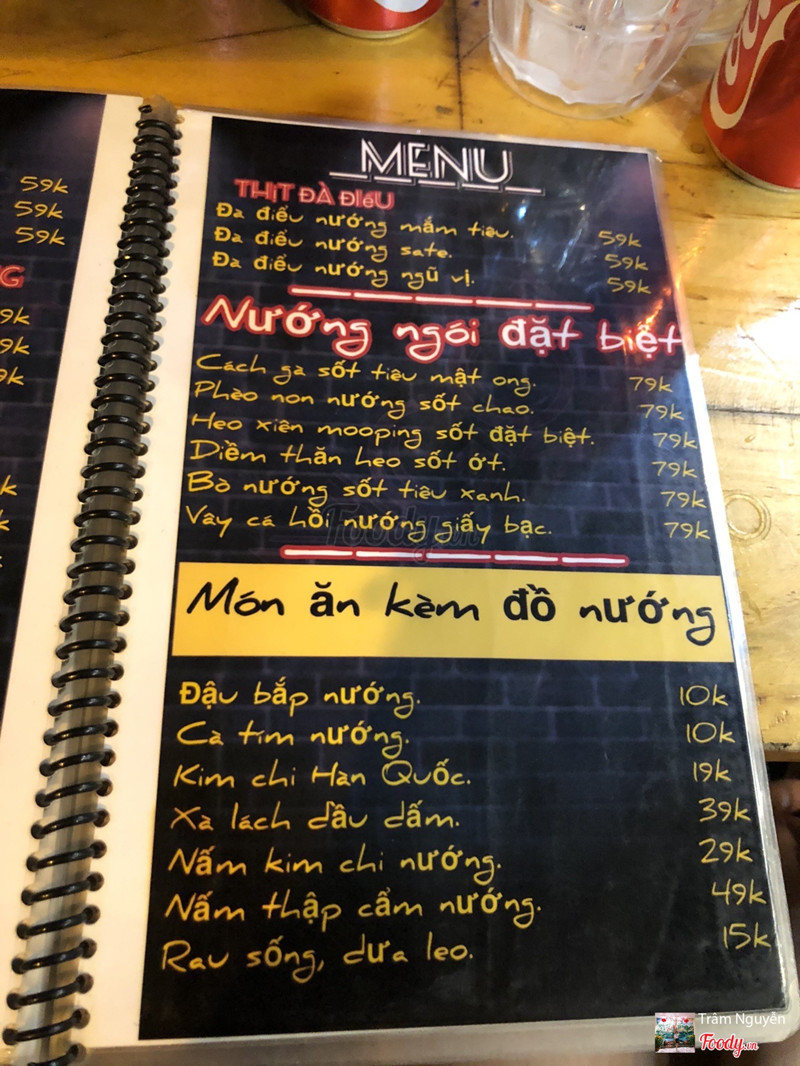 59k
59k
59k
G
9k
9k
9k
k
k
MENU
THỊT ĐÀ ĐIểU
Đà điểu nướng mắm tiêu. 59k
Đà điểu nướng sate. 59k
Đà điểu nướng ngũ vị. 59k
Nướng ngói đặt biệt
Cách gà sốt tiêu mật ong. 79k
Phèo non nướng sốt chao. 79k
Heo xiên mooping sốt đặt biệt. 79k
Diềm thăn heo sốt ớt. 79k
Bò nướng sốt tiêu xanh. 79k
Vây cá hồi nướng giấy bạc. 79k
Foody.vn
Món ăn kèm đồ nướng
Đậu bắp nướng. 10k
Cà tím nướng. 10k
Kim chi Hàn Quốc. 19k
Xà lách dầu dấm. 39k
Nấm kim chi nướng. 29k
Nấm thập cẩm nướng. 49k
Rau sống, dưa leo. 15k
Trâm Nguyễn
Foody.vn